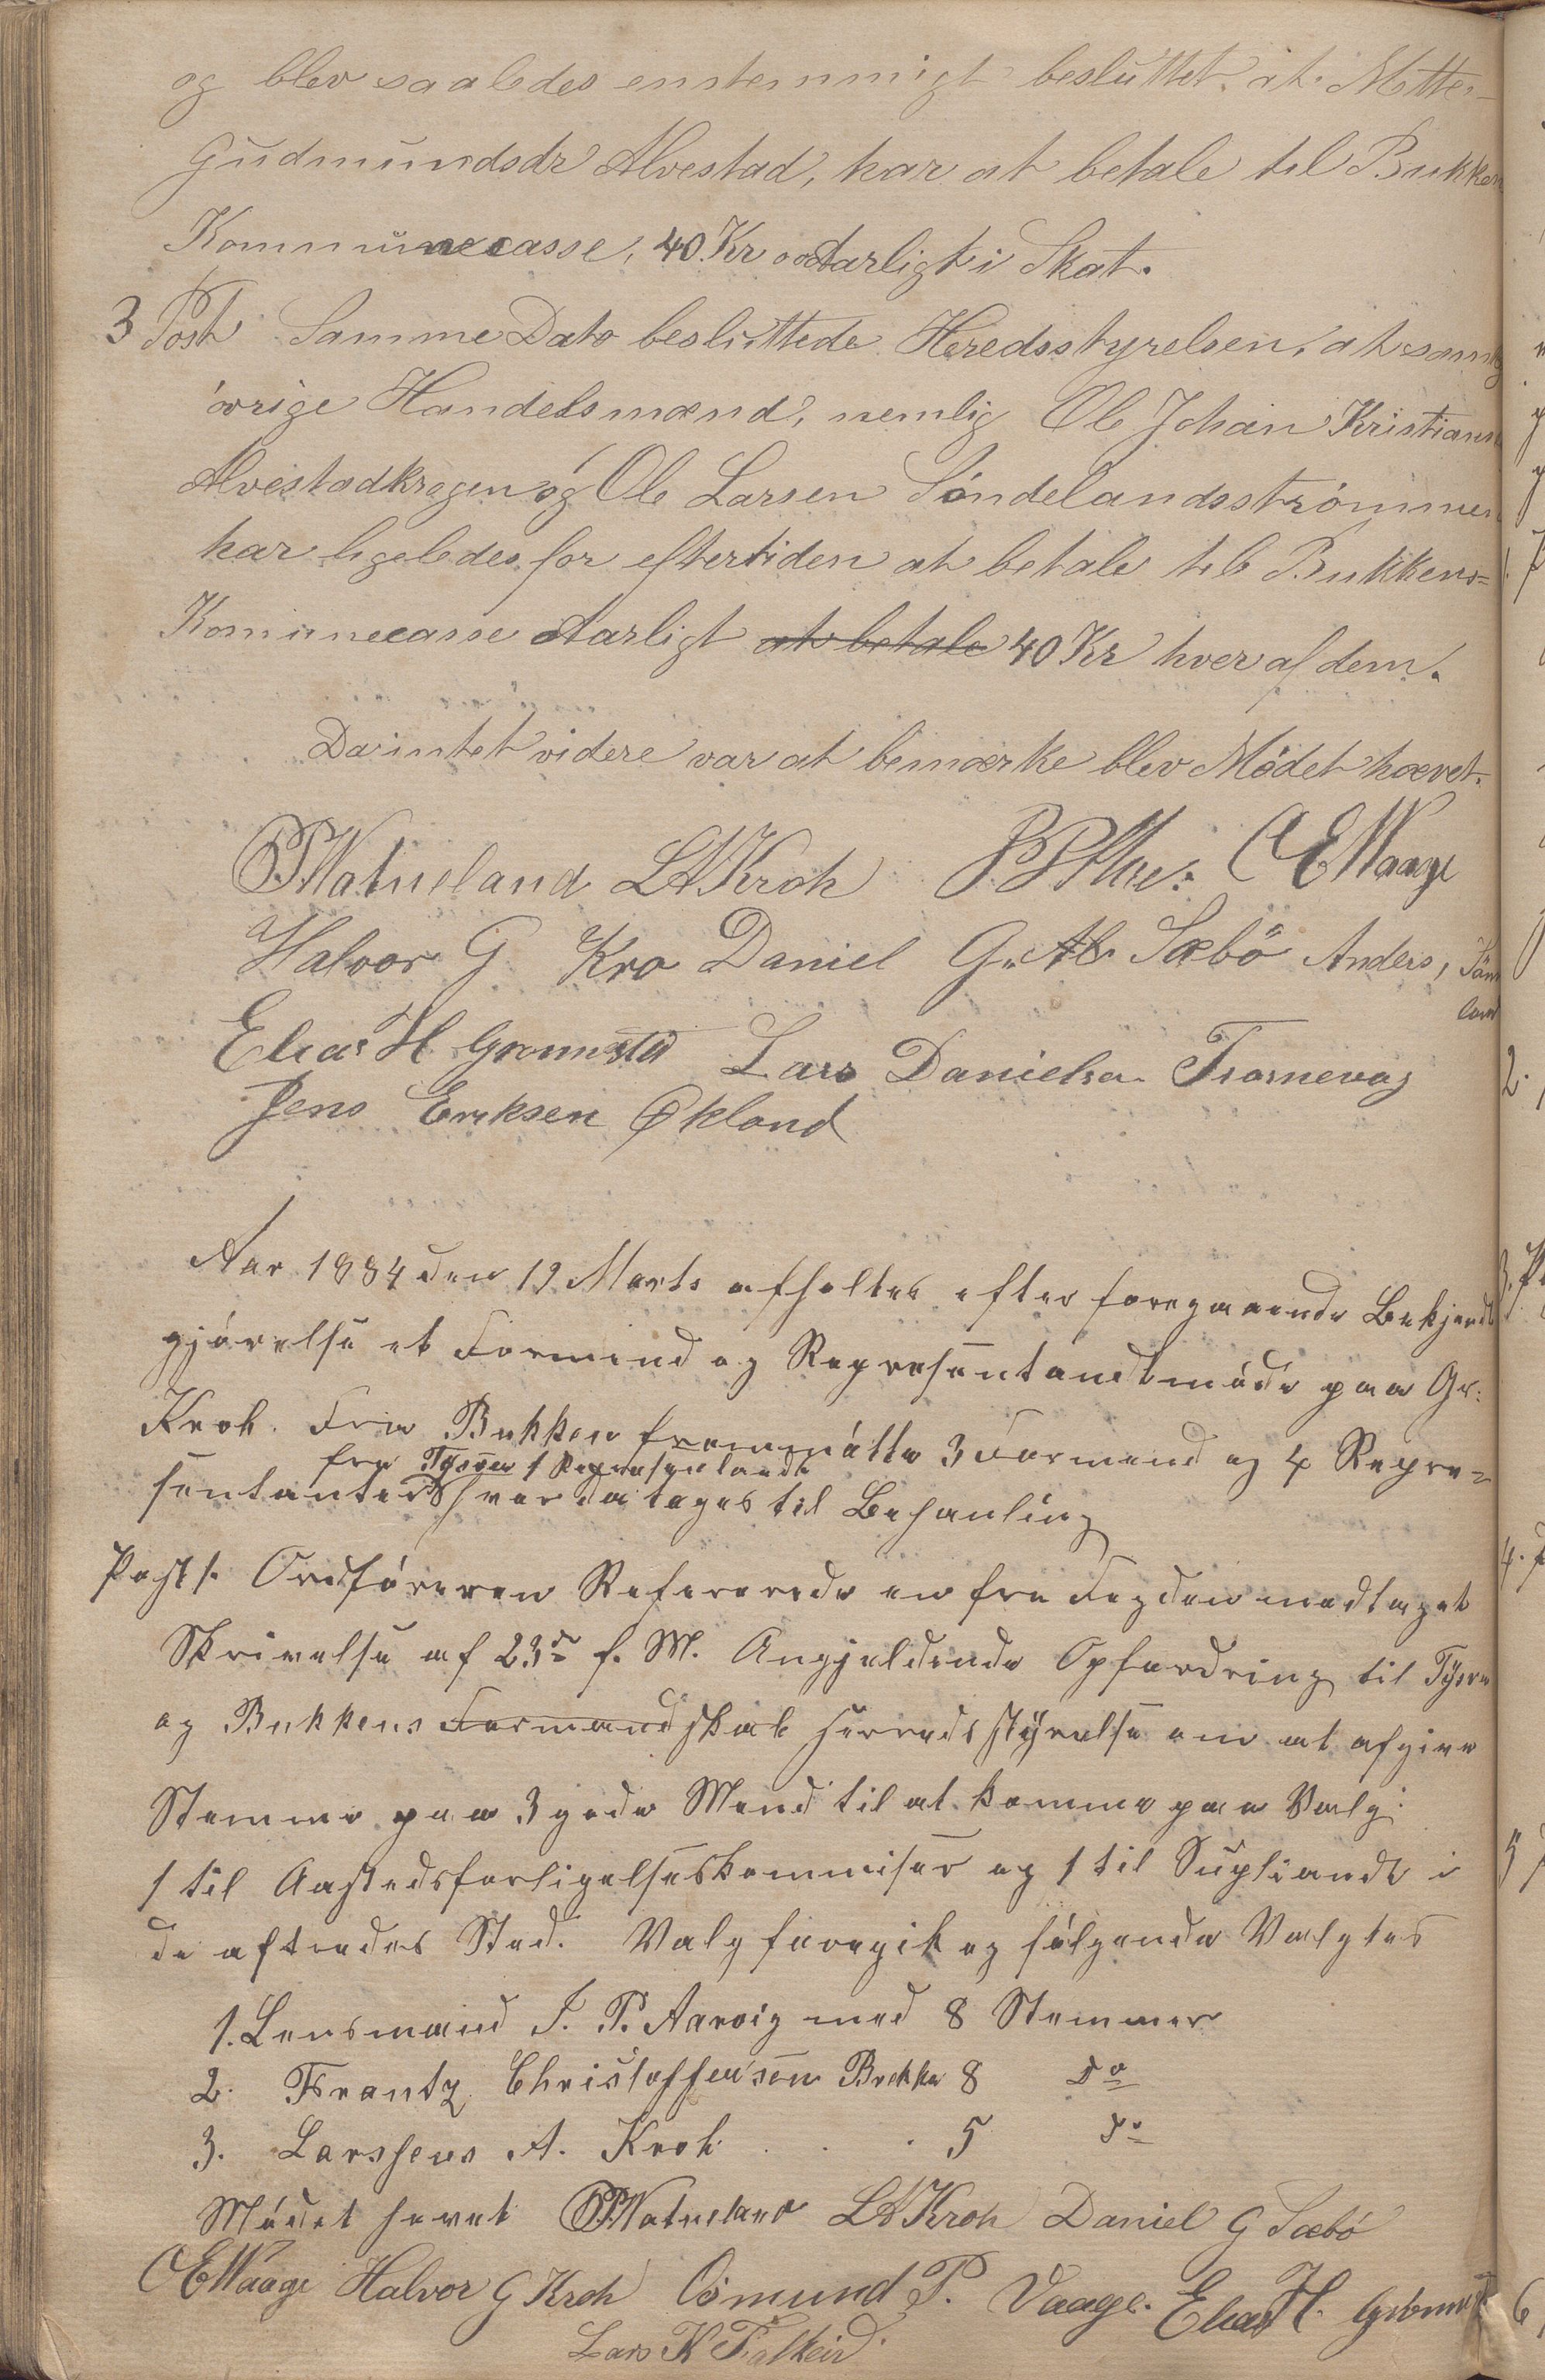 og blev saaledes enstemmigt besluttet at Mette
Gudmundsdr Alvestad, har at betale til Bukken
Kommunecasse, 40 Kr Aarligt i Skat.
3 Post Samme Dato besluttede Heredsstyrelsen, at samtg
övrige Handelsmænd, nemlig Ole Johan Kristians
Alvestadkragen og Ole Larsen Söndelandsströmmen
har ligeledes for eftertiden at betale til Bukkens-
Kommunecasse Aarligt at betale 40 Kr hver af dem.
Da intet videre var at bemærke blev Mödet hævet.
O P Watneland LAKroh C E Waage
Halvor G Kro Daniel G. Sæbö Anders,
Elias H Grønnestad Lars Danielsen Fosnevag
Jens Eriksen Økland
Aar 1884 den 19 Marts afholtes efter foregaaende Bekjendt
gjörelse et Formend og Representandtmöde paa Gr:
Kroh. Fra Bukken fremmötte 3 Formend og 4 Repre=
fra Tysver 1 Representandt
sentanter hvor da toges til Behanling
Post 1. Ordföreren Refererede en fra Fogden modtaget
Skrivelse af 23de f. M. Angjeldende Opfordring til Tysvær
og Bukkens Formandskab Herredsstyrelse om at afgive
Stemme paa 3 gode Mend til at komme paa Valg:
1 til Aastedsforligelseskommisær og 1 til Supliandt i
de aftredes Sted. Valg foregik og fölgende Valgtes
1. Lensmand J. P. Aarvig med 8 Stemmer
2. Frantz Christoffersen Bokken 8 do
3. Larsjens A. Kroh . . . 5 do
Mödet hevet O P Watneland LAKroh Daniel G Sæbö
C E Waage Halvor G Kroh Osmund P. Vaage. Elias H. Grönnest
Lars K Falkeid.